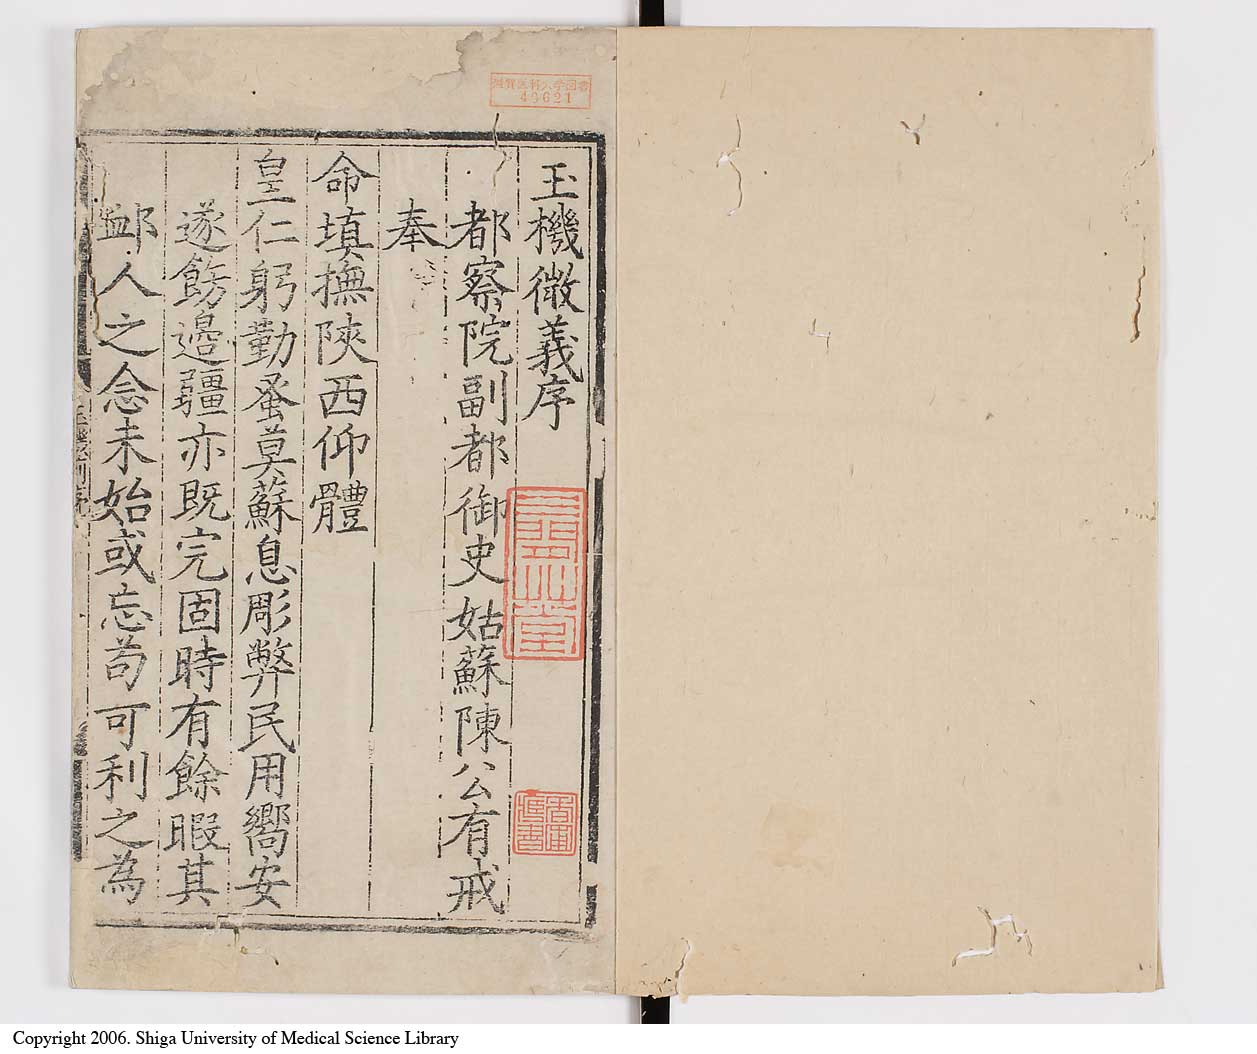 滋賀医科大学図書
49621
玉機微義序
都察院副都御史姑蘇陳公有戒
奉
命填撫陝西仰體
皇仁躬勤蚤莫蘇息彫弊民用嚮安
遂飭邊疆亦既完固時有餘暇其
卹人之念未始或忘苟可利之為
Copyright 2006. Shiga University of Medical Science Library